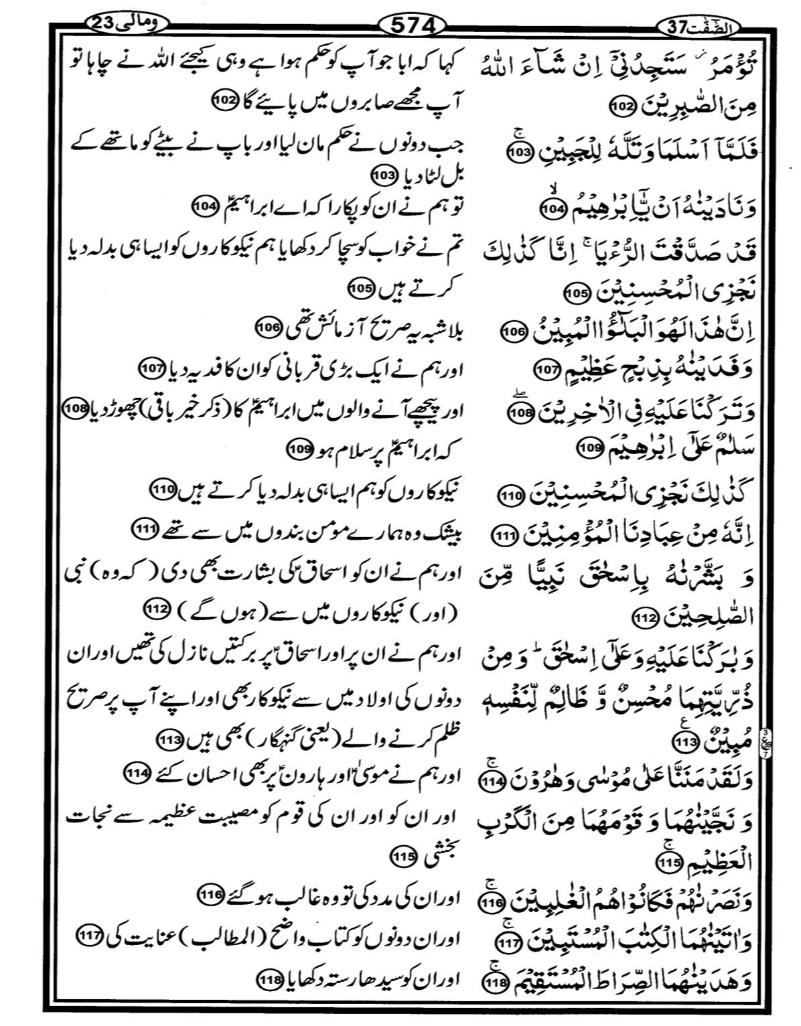 الصّٰفّٰت 37
574
ومالی 23
تُؤۡمَرُ ۫ سَتَجِدُنِیۡۤ اِنۡ شَآءَ اللّٰهُ
کہا کہ ابا جو آپ کو حکم ہوا ہے وہی کیجئے اللہ نے چاہا تو
مِنَ الصّٰبِرِیۡنَ 102
آپ مجھے صابروں میں پایئے گا 102
فَلَمَّاۤ اَسۡلَمَا وَتَلَّهٗ لِلۡجَبِیۡنِ ۚ 103
جب دونوں نے حکم مان لیا اور باپ نے بیٹے کو ماتھے کے
بل لٹا دیا 103
وَنَادَیۡنٰهُ اَنۡ یّٰۤاِبۡرٰهِیۡمُ ۙ 104
تو ہم نے ان کو پکارا کہ اے ابراہیمؑ 104
قَدۡ صَدَّقۡتَ الرُّءۡیَا ۚ اِنَّا کَذٰلِكَ
تم نے خواب کو سچا کر دکھایا ہم نیکوکاروں کو ایسا ہی بدلہ دیا
نَجۡزِی الۡمُحۡسِنِیۡنَ 105
کرتے ہیں 105
اِنَّ هٰذَا لَهُوَ الۡبَلٰٓؤُا الۡمُبِیۡنُ 106
بلاشبہ یہ صریح آزمائش تھی 106
وَفَدَیۡنٰهُ بِذِبۡحٍ عَظِیۡمٍ 107
اور ہم نے ایک بڑی قربانی کو ان کا فدیہ دیا 107
وَتَرَکۡنَا عَلَیۡهِ فِی الۡاٰخِرِیۡنَ ۖ 108
اور پیچھے آنے والوں میں ابراہیمؑ کا (ذکر خیر باقی) چھوڑ دیا 108
سَلٰمٌ عَلٰۤی اِبۡرٰهِیۡمَ 109
کہ ابراہیمؑ پر سلام ہو 109
کَذٰلِكَ نَجۡزِی الۡمُحۡسِنِیۡنَ 110
نیکوکاروں کو ہم ایسا ہی بدلہ دیا کرتے ہیں 110
اِنَّهٗ مِنۡ عِبَادِنَا الۡمُؤۡمِنِیۡنَ 111
بیشک وہ ہمارے مومن بندوں میں سے تھے 111
وَ بَشَّرۡنٰهُ بِاِسۡحٰقَ نَبِیًّا مِّنَ
اور ہم نے ان کو اسحاقؑ کی بشارت بھی دی (کہ وہ) نبی
الصّٰلِحِیۡنَ 112
(اور) نیکوکاروں میں سے (ہوں گے) 112
وَ بٰرَکۡنَا عَلَیۡهِ وَعَلٰۤی اِسۡحٰقَ ؕ وَ مِنۡ
اور ہم نے ان پر اور اسحاقؑ پر برکتیں نازل کی تھیں اور ان
ذُرِّیَّتِهِمَا مُحۡسِنٌ وَّ ظَالِمٌ لِّنَفۡسِهٖ
دونوں کی اولاد میں سے نیکوکار بھی اور اپنے آپ پر صریح
مُبِیۡنٌ ع 113
ظلم کرنے والے (یعنی گنہگار) بھی ہیں 113
وَلَقَدۡ مَنَنَّا عَلٰی مُوۡسٰی وَهٰرُوۡنَ ۚ 114
اور ہم نے موسیٰؑ اور ہارونؑ پر بھی احسان کئے 114
وَ نَجَّیۡنٰهُمَا وَ قَوۡمَهُمَا مِنَ الۡکَرۡبِ
اور ان کو اور ان کی قوم کو مصیبت عظیمہ سے نجات
الۡعَظِیۡمِ ۚ 115
بخشی 115
وَنَصَرۡنٰهُمۡ فَکَانُوۡا هُمُ الۡغٰلِبِیۡنَ ۚ 116
اور ان کی مدد کی تو وہ غالب ہو گئے 116
وَاٰتَیۡنٰهُمَا الۡکِتٰبَ الۡمُسۡتَبِیۡنَ ۚ 117
اور ان دونوں کو کتاب واضح (المطالب) عنایت کی 117
وَهَدَیۡنٰهُمَا الصِّرَاطَ الۡمُسۡتَقِیۡمَ ۚ 118
اور ان کو سیدھا رستہ دکھایا 118